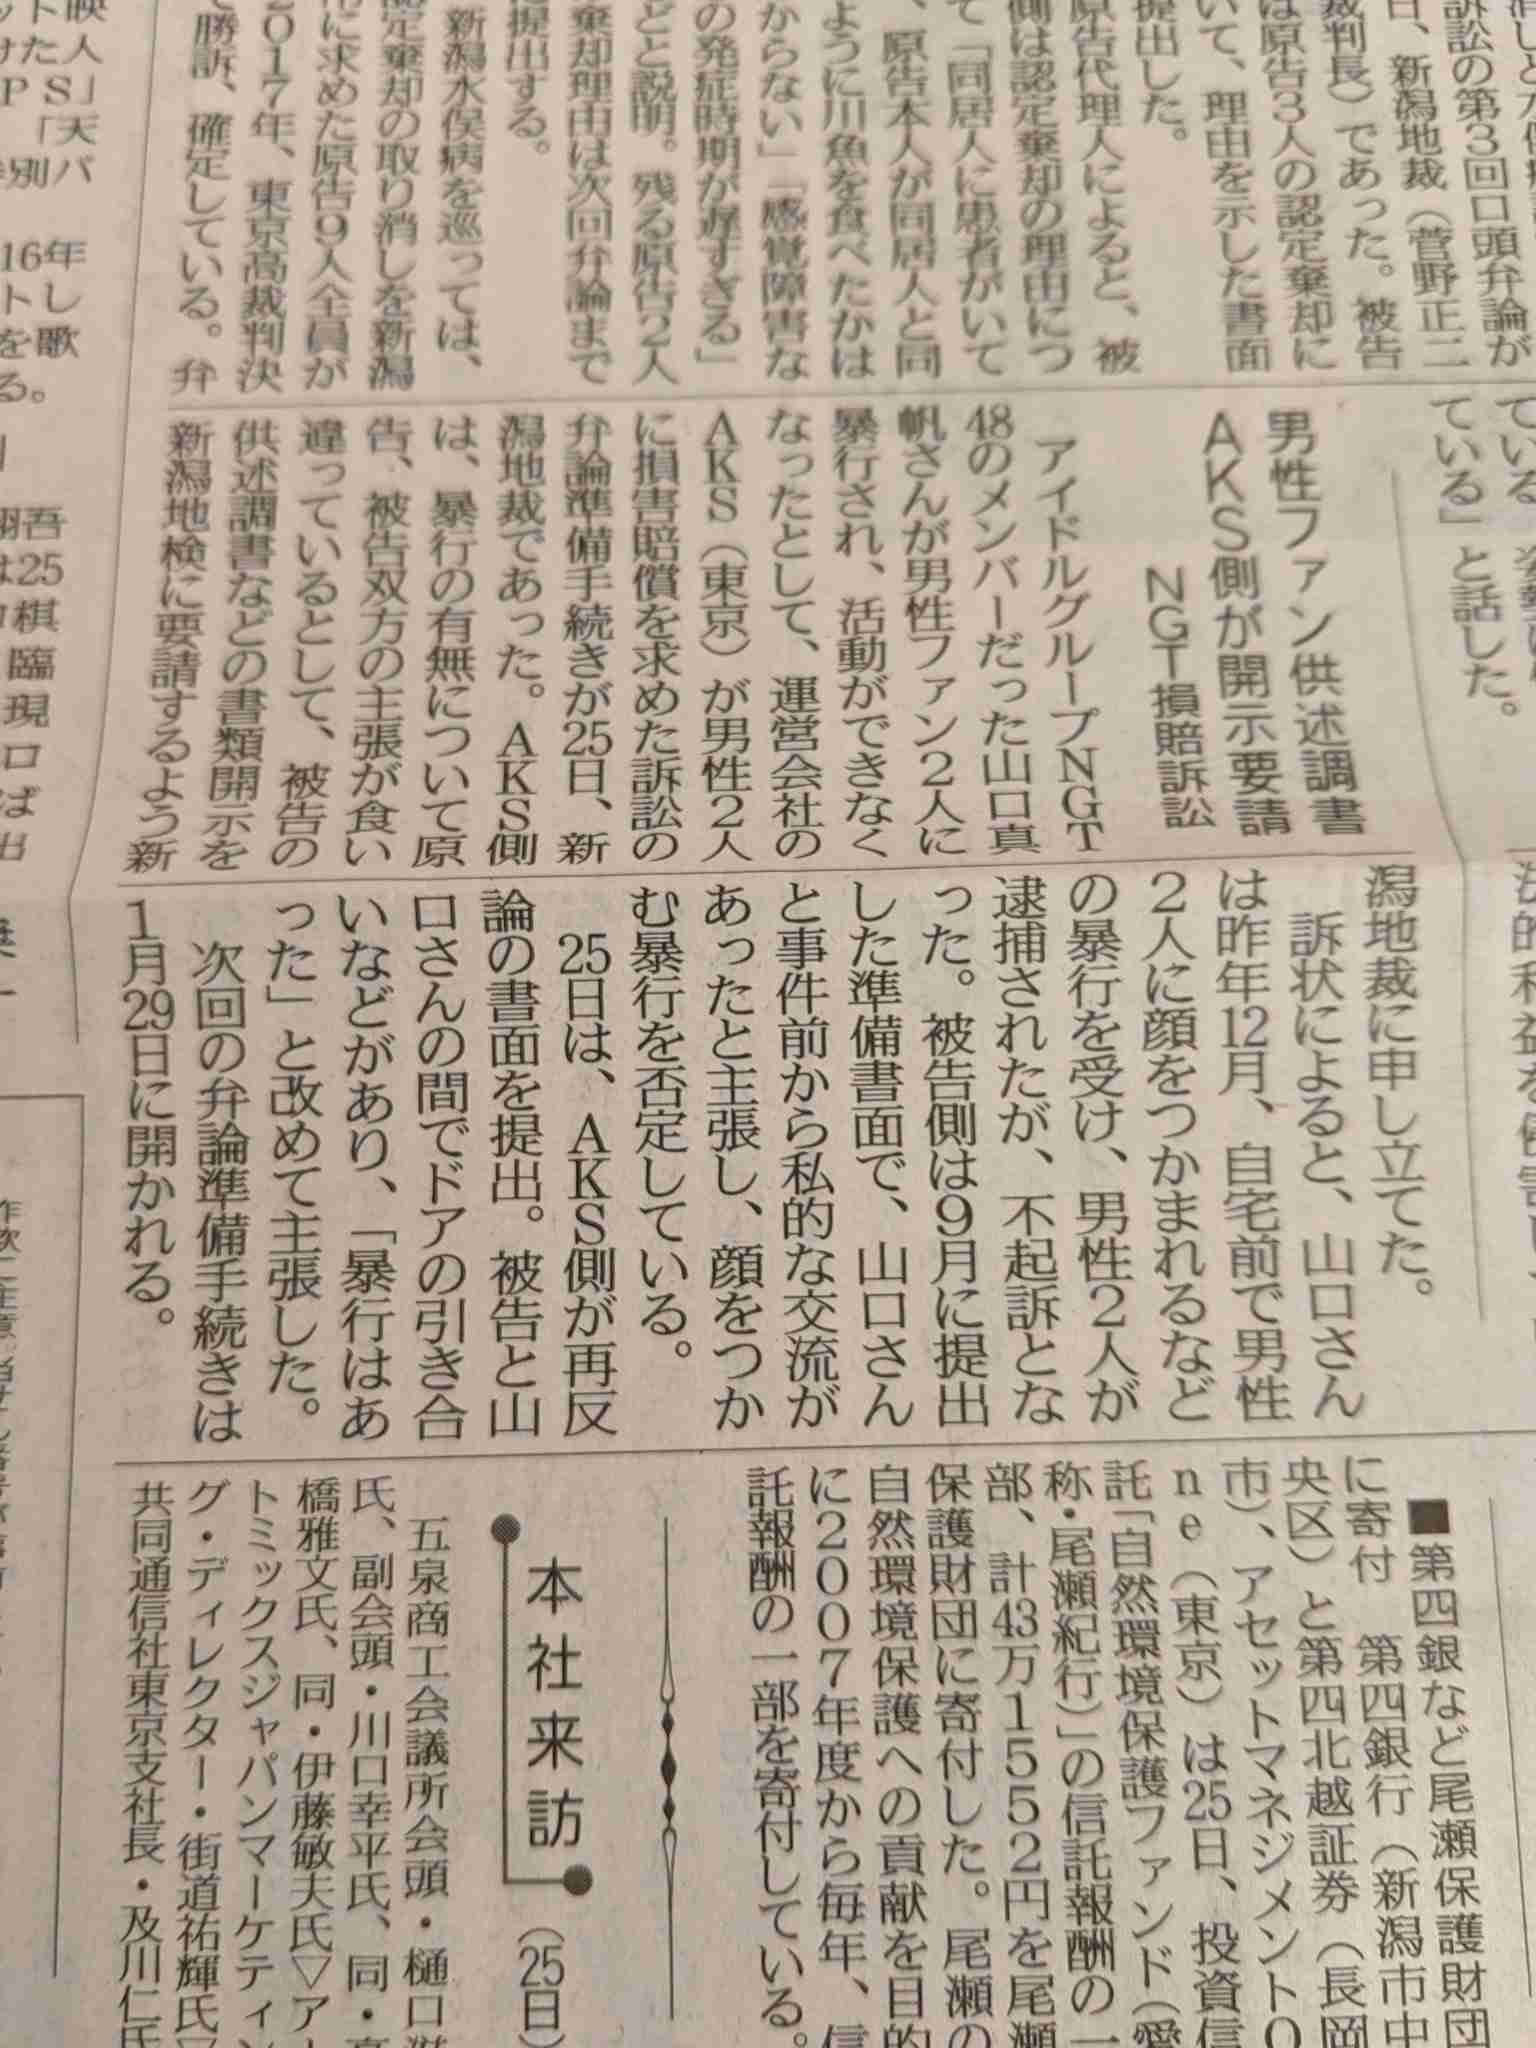 訟の第3回口頭弁論が
日、新潟地裁(菅野正二
裁判長)であった。被告
は原告3人の認定棄却に
いて、理由を示した書面
提出した。
原告代理人によると、被
側は認定棄却の理由につ
て「同居人に患者がいて
、原告本人が同居人と同
ように川魚を食べたかは
からない」「感覚障害な
の発症時期が遅すぎる」
どと説明。残る原告2人
棄却理由は次回弁論まで
に提出する。
新潟水俣病を巡っては、
認定棄却の取り消しを新潟
市に求めた原告9人全員が
2017年、東京高裁判決
で勝訴、確定している。弁
ている
ている」と話した。
男性ファン供述調書
AKS側が開示要請
NGT損賠訴訟
アイドルグループNGT
48のメンバーだった山口真
帆さんが男性ファン2人に
暴行され、活動ができなく
なったとして、運営会社の
AKS(東京)が男性2人
に損害賠償を求めた訴訟の
弁論準備手続きが25日、新
潟地裁であった。AKS側
は、暴行の有無について原
告、被告双方の主張が食い
違っているとして、被告の
供述調書などの書類開示を
新潟地検に要請するよう新
潟地裁に申し立てた。
訴状によると、山口さん
は昨年12月、自宅前で男性
2人に顔をつかまれるなど
の暴行を受け、男性2人が
逮捕されたが、不起訴とな
った。被告側は9月に提出
した準備書面で、山口さん
と事件前から私的な交流が
あったと主張し、顔をつか
む暴行を否定している。
25日は、AKS側が再反
論の書面を提出。被告と山
口さんの間でドアの引き合
いなどがあり、「暴行はあ
った」と改めて主張した。
次回の弁論準備手続きは
1月29日に開かれる。
■第四銀など尾瀬保護財団
に寄付 第四銀行(新潟市中
央区)と第四北越証券(長岡
市)、アセットマネジメントO
ne(東京)は25日、投資信
託「自然環境保護ファンド(愛
称・尾瀬紀行)」の信託報酬の一
部、計43万1552円を尾瀬
保護財団に寄付した。尾瀬の
自然環境保護への貢献を目的
に2007年度から毎年、信
託報酬の一部を寄付している。
本社来訪
(25日)
五泉商工会議所会頭・樋口
氏、副会頭・川口幸平氏、同・
橋雅文氏、同・伊藤敏夫氏▽ア
トミックスジャパンマーケティン
グ・ディレクター・街道祐輝氏▽
共同通信社東京支社長・及川仁氏
映
人
た
S」
「天
別バ
16年
し
を歌
る。
吾
は25
棋
臨
現
ロ
ば
出